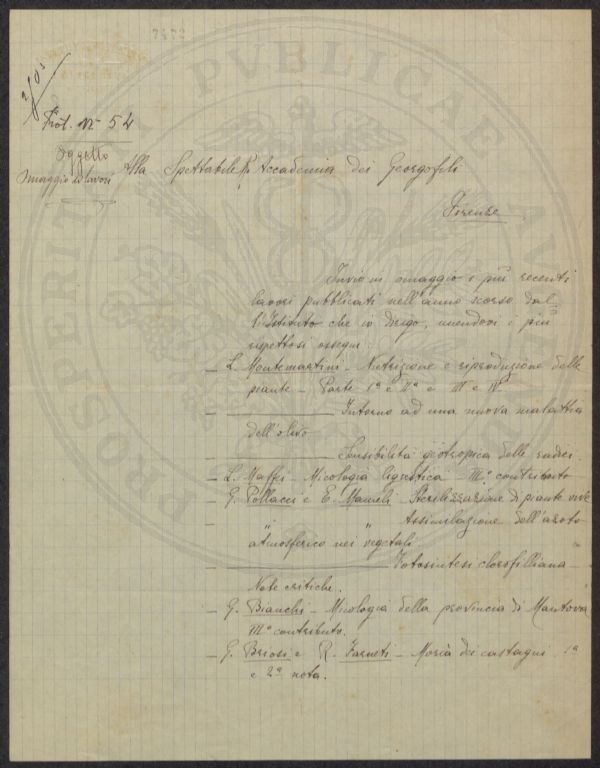 7472
Prot. N° 54
Oggetto
Omaggio di lavori
Alla Spettabile R. Accademia dei Georgofili
Firenze
Invio in omaggio i più recenti
lavori pubblicati nell'anno scorso dal-
l'Istituto che io dirigo, unendovi i più
rispettosi ossequi
_ L. Montemartini - Nutrizione e riproduzione delle
piante - Parte Iª e IIª e III e IV
_ Intorno ad una nuova malattia
dell'olivo
_ Sensibilità geotropica delle radici.
_ L. Maffei - Micologia ligustica - III° contributo
_ G. Pollacci e E. Mameli - Sterilizzazione di piante vive
_ " " Assimilazione dell'azoto
atmosferico nei vegetali
_ Fotosintesi clorofilliana -
Note critiche.
_ G. Bianchi - Micologia della provincia di Mantova
III° contributo.
_ G. Briosi e R. Farneti - Moria dei castagni 1ª
e 2ª nota.
PROSPERITATI PUBLICAE AUGENDAE